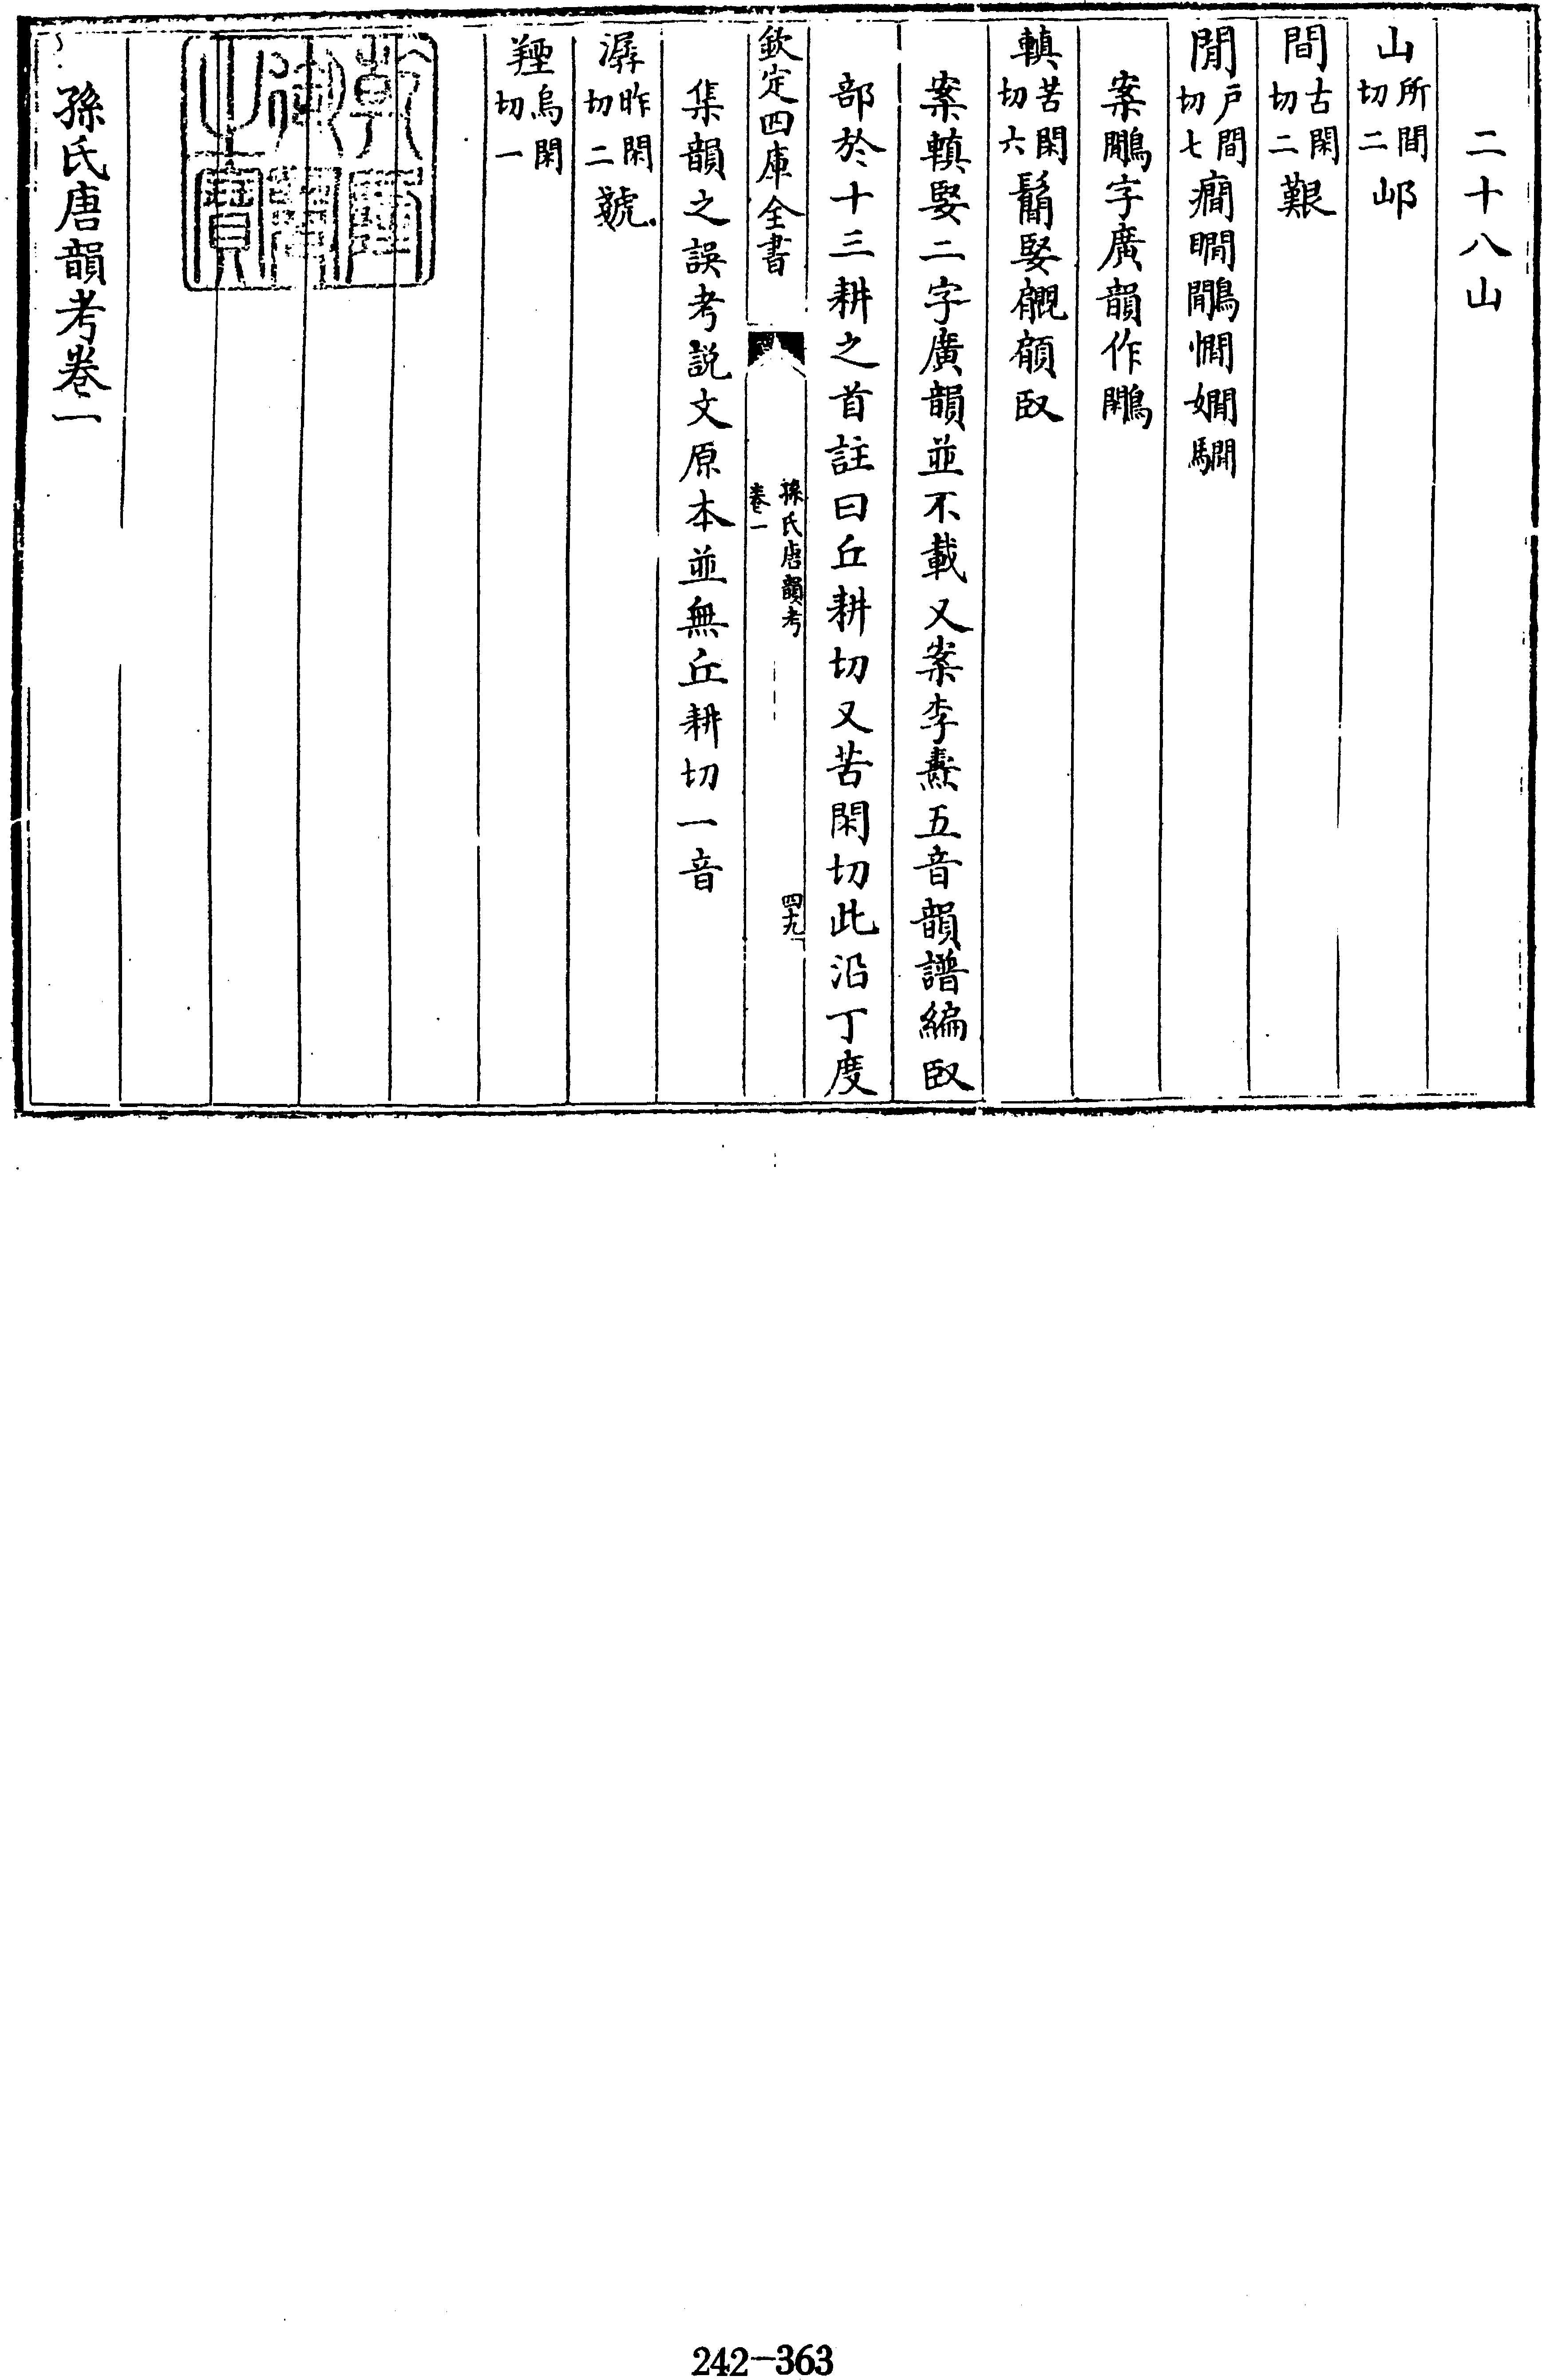 二十八山
山所間切二邖
間古閑切二艱
閒戸間切七癇瞯鷴憪嫺騆
案鷴字廣韻作鷳
䡩苦閑切六鬜婜覵頋臤
案䡩婜二字廣韻並不載又案李燾五音韻譜編臤
部於十三耕之首註曰丘耕切又苦閑切此沿丁度
欽定四庫全書
孫氏唐韻考
卷一
四十九
集韻之誤考説文原本並無丘耕切一音
潺昨閑切二虥
羥烏閑切一
乾隆御覽之寶
孫氏唐韻考卷一
242-363